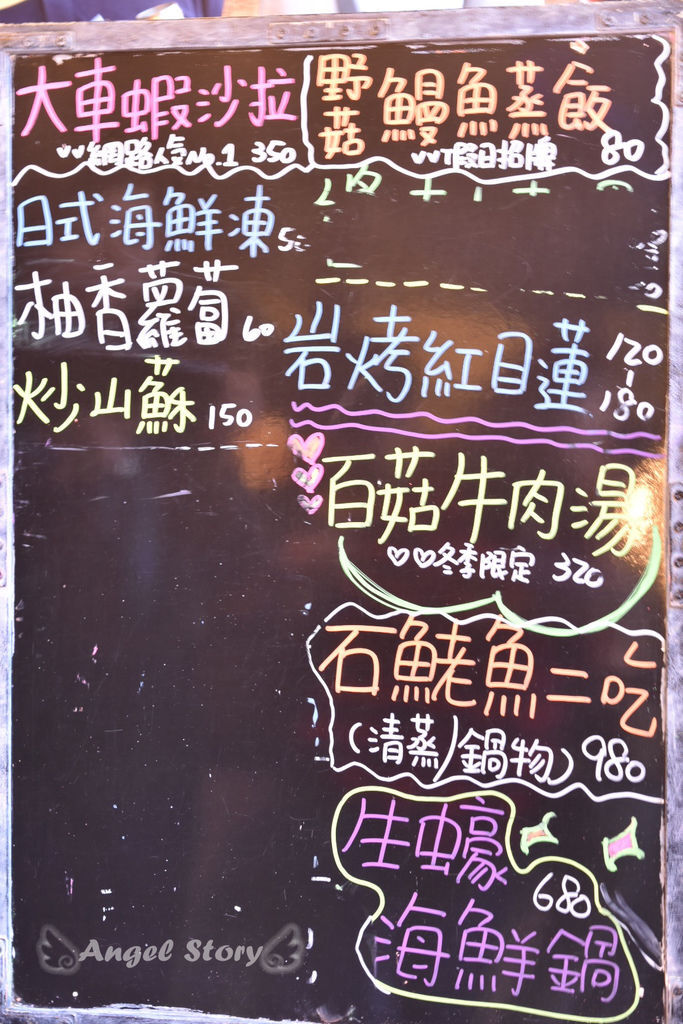 大車蝦沙拉
網路人氣No.1 350
日式海鮮凍
柚香蘿蔔 60
炒山蘇 150
野菇
鰻魚蒸飯
假日招牌 80
岩烤紅目蓮 120
180
百菇牛肉湯
冬季限定 320
石鮱魚二吃
(清蒸/鍋物) 980
生蠔
680
海鮮鍋
Angel Story